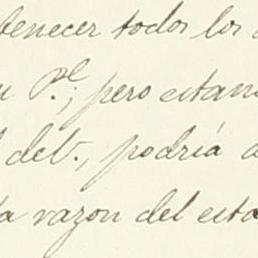 tenecer todos los
u P.e; pero estam
deb., podría a
ta razon del esta